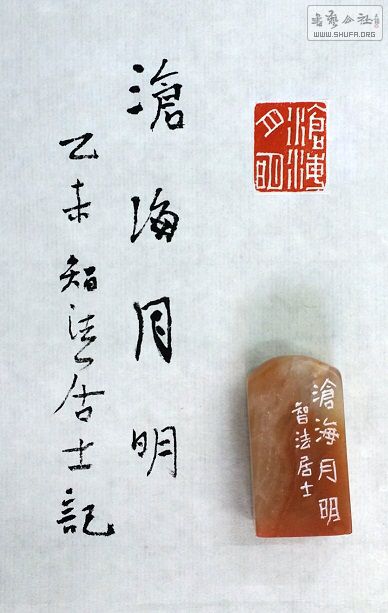 滄海月明
乙未智法居士記
滄海月明
滄海月明
智法居士
书艺公社
WWW.SHUFA.ORG